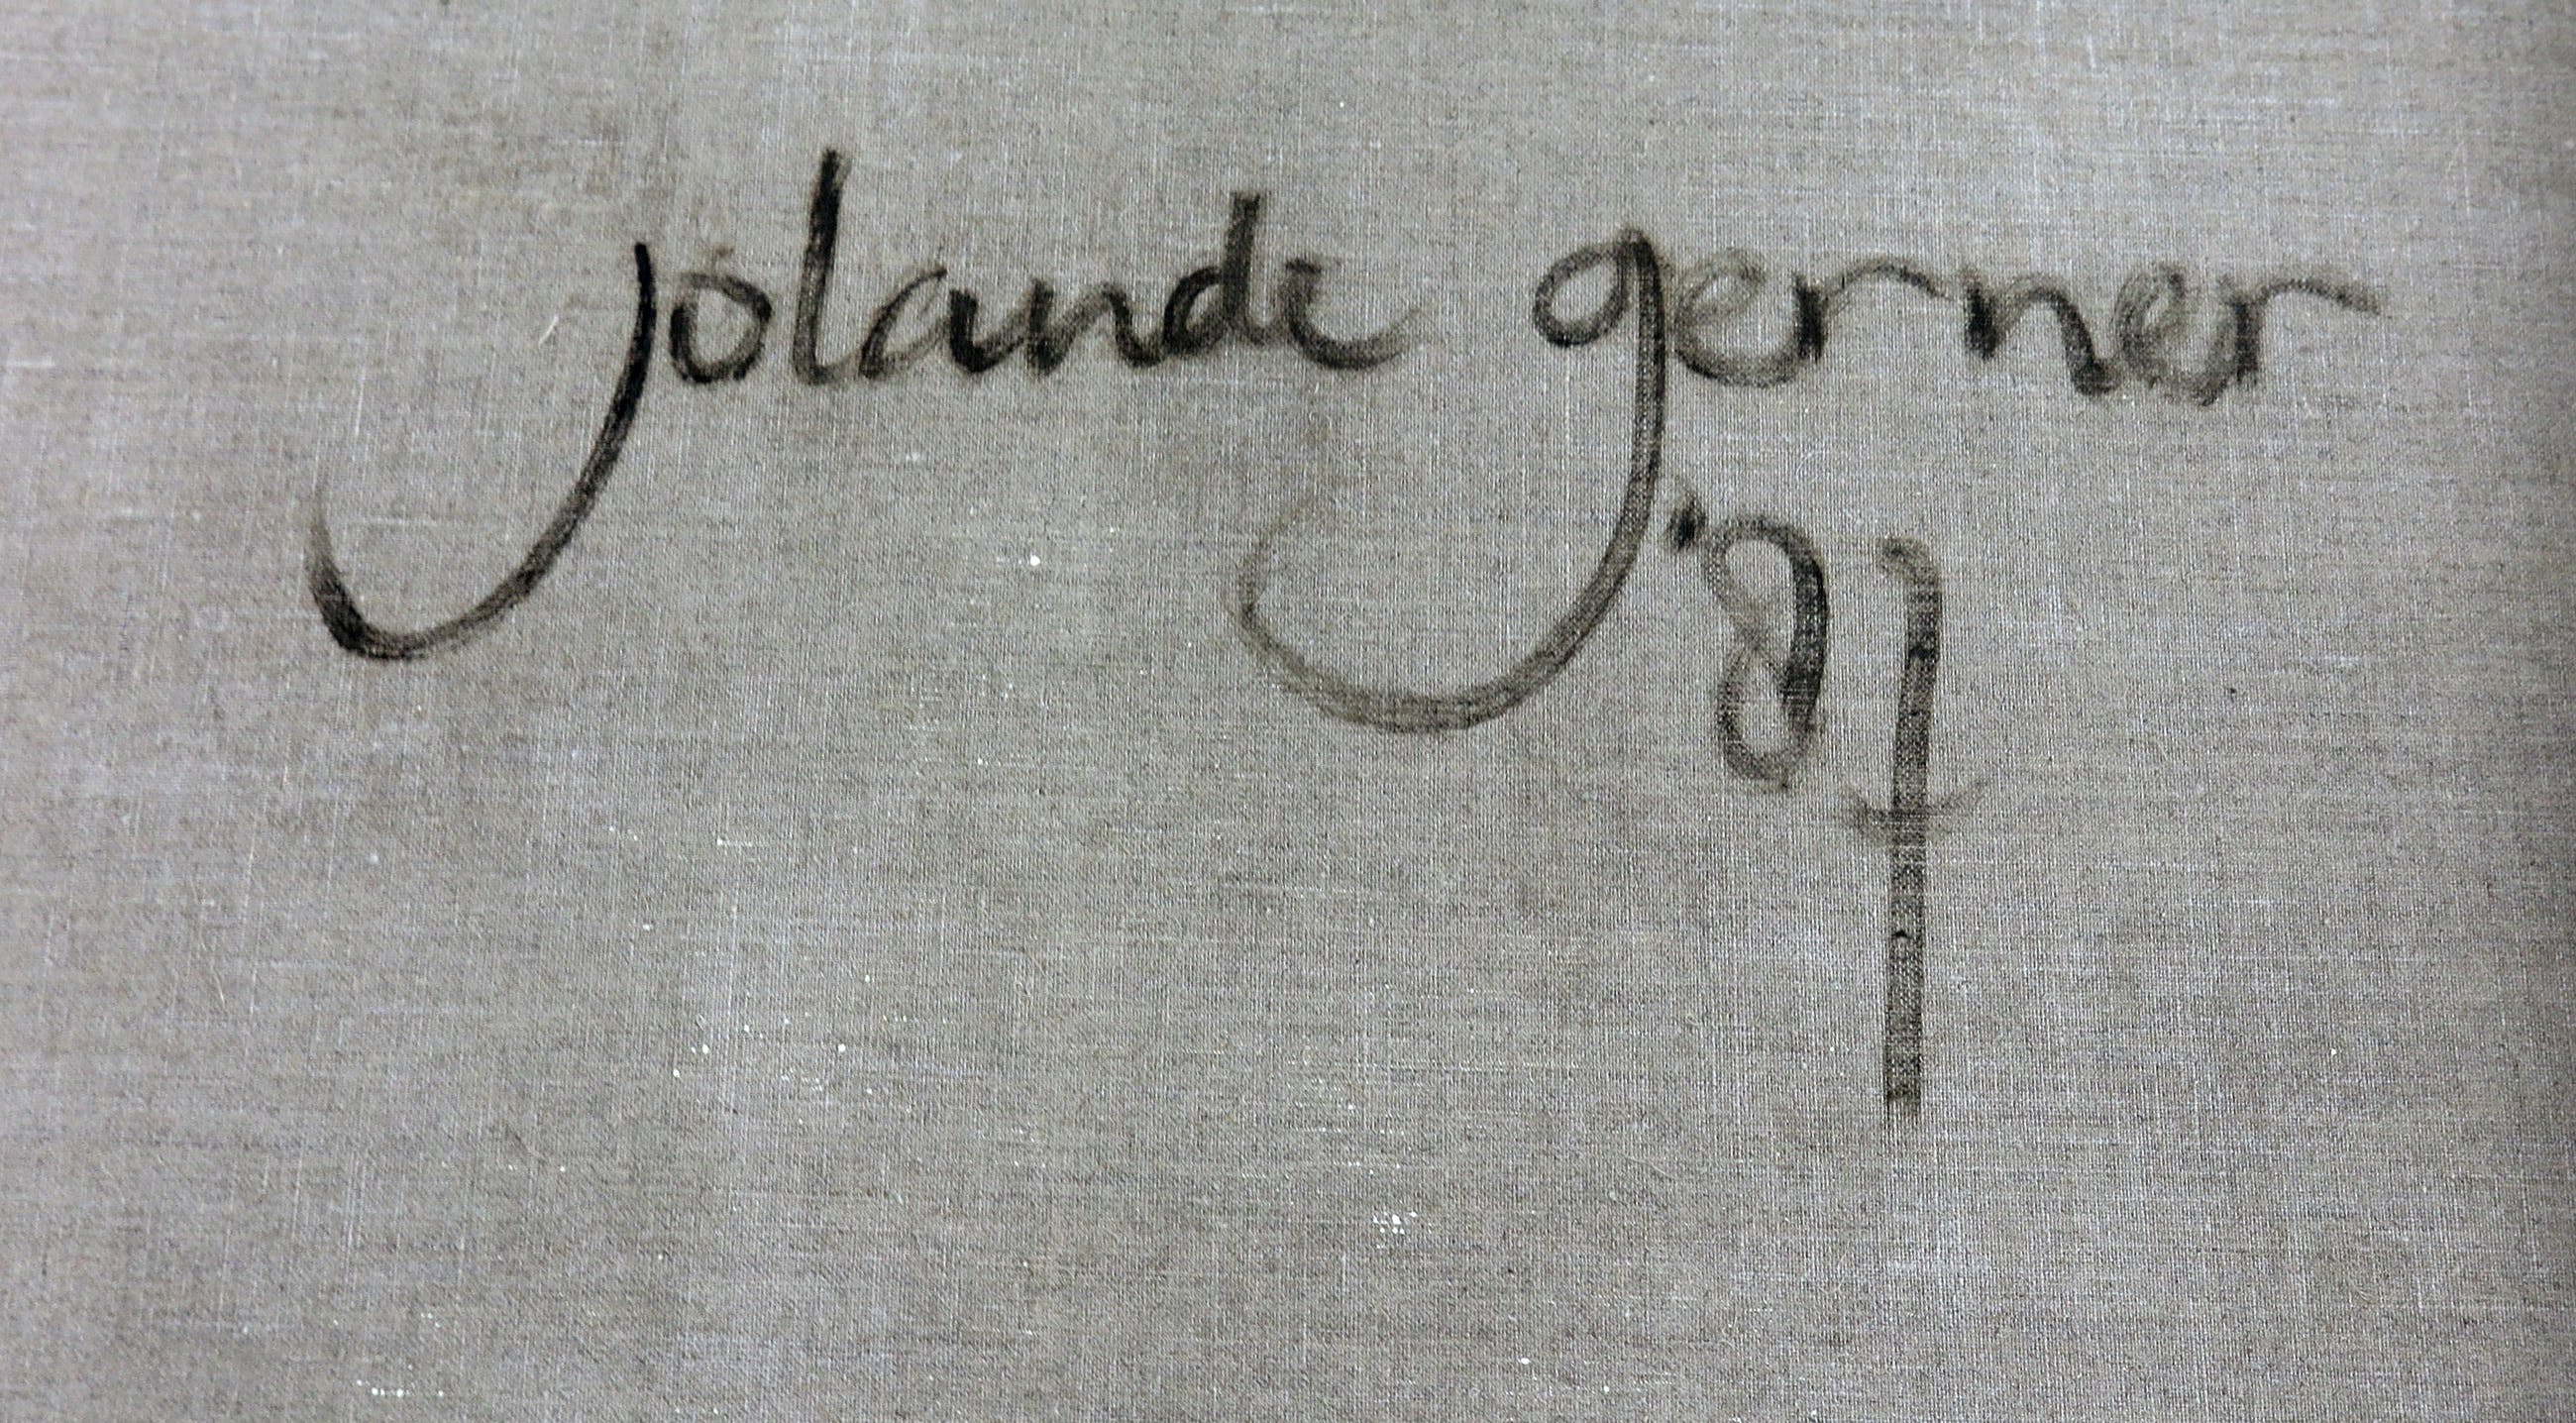 jolande gerner
'87